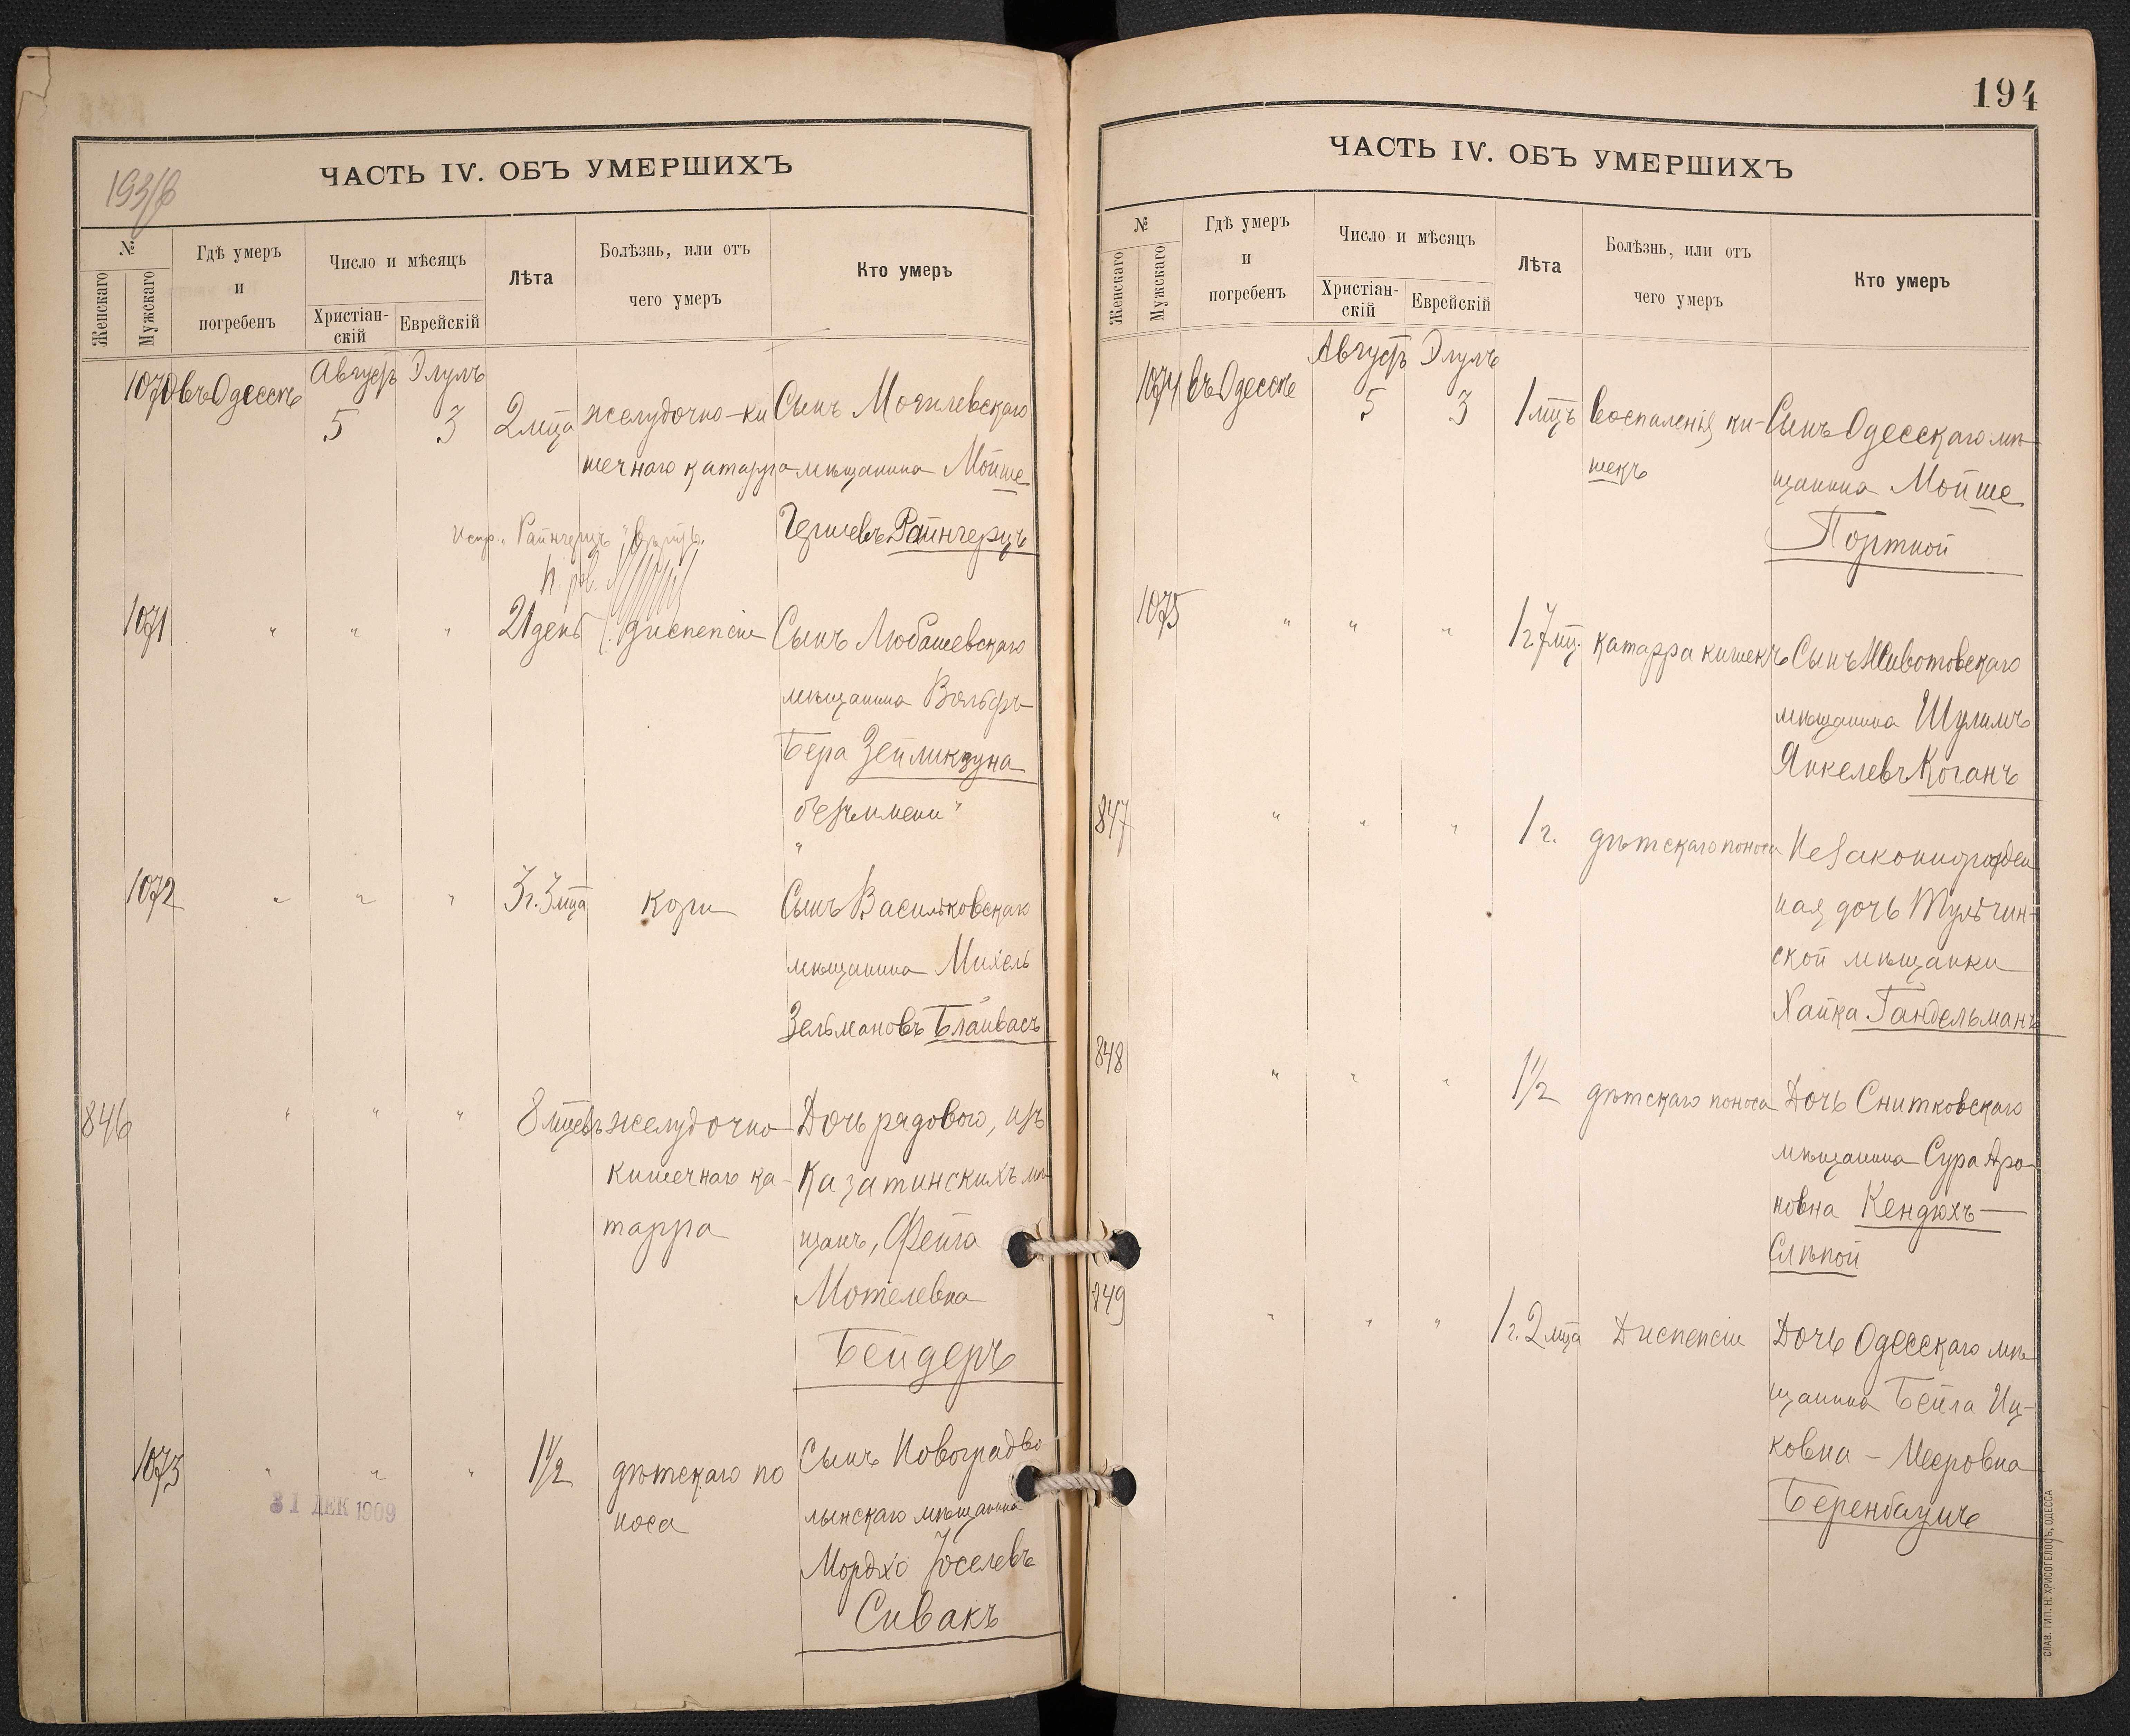 193/б
ЧАСТЬ IV. ОБЪ УМЕРШИХЪ
№
Женскаго
Мужскаго
Гдѣ умеръ
и
погребенъ
Число и мѣсяцъ
Христіан-
скій
Еврейскій
Лѣта
Болѣзнь, или отъ
чего умеръ
Кто умеръ
Августъ Элулъ
1070 въ Одессѣ 5 3 2 мца желудочно-ки Сынъ Могилевскаго
шечнаго катарра мѣщанина Мойше
Гершевъ Райнгерцъ
испр. "Райнгерцъ" вѣрить.
1071 " " " 21 день диспепсіи Сынъ Любашевскаго
мѣщанина Вольфъ
Бера Зейликзуна
безъ имени"
"
1072 " " " 3г. 3 мца кори Сынъ Васильковскаго
мѣщанина Михель
Зельмановъ Блайвасъ
846 " " " 8 мцевъ желудочно Дочь рядового, изъ
кишечнаго ка- Казатинскихъ мѣ
тарра щанъ, Фейга
Мотелевна
Бейдеръ
1073 " " " 1½ дѣтскаго по Сынъ Новоградво
носа лынскаго мѣщанина
Мордхо Іоселевъ
Сивакъ
31 ДЕК 1909
194
ЧАСТЬ IV. ОБЪ УМЕРШИХЪ
№
Женскаго
Мужскаго
Гдѣ умеръ
и
погребенъ
Число и мѣсяцъ
Христіан-
скій
Еврейскій
Лѣта
Болѣзнь, или отъ
чего умеръ
Кто умеръ
Августъ Элулъ
1074 въ Одессѣ 5 3 1 мцъ воспаленія ки- Сынъ Одесскаго мѣ
шекъ щанина Мойше
Портной
1075 " " " 1г. 7 мц. катарра кишекъ Сынъ Животовскаго
мѣщанина Шулимъ
Янкелевъ Коганъ
847 " " " 1 г. дѣтскаго поноса Незаконнорожден
ная дочь Тульчин-
ской мѣщанки
Хайка Гандельманъ
848 " " " 1½ дѣтскаго поноса Дочь Снитковскаго
мѣщанина Сура Аро-
новна Кендюхъ-
Слѣпой
849 " " " 1 г. 2 мца Диспепсіи Дочь Одесскаго мѣ
щанина Бейла Иц-
ковна - Меєровна
Беренбаумъ
СЛАВ. ТИП. Н. ХРИСОГЕЛОСЪ, ОДЕССА